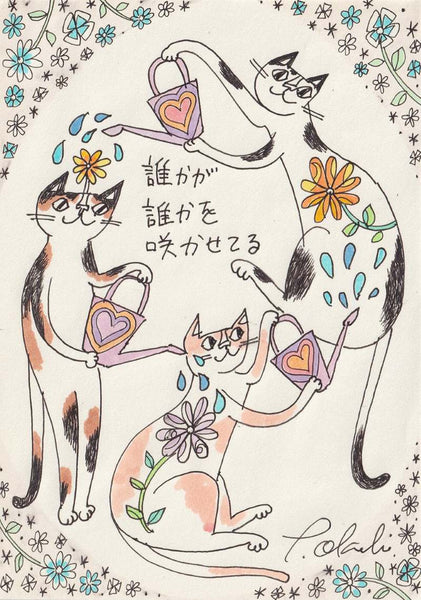 誰かが
誰かを
咲かせてる